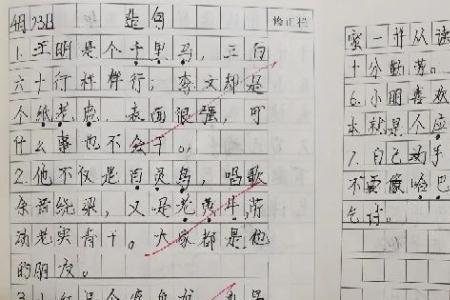 4月23日 造句 修正栏
1.王明是个千里马,三百
六十行样样行;李文却是
个纸老虎,表面很强,可
什么事也不会干。
2.他不仅是百灵鸟,唱歌
余音绕梁,又是老黄牛,劳
动老实肯干。大家都是他
的朋友。
3.小红是个
蜜一并从读
十分勤劳。
6.小丽喜欢
本就是个应
7.自己动手
不要做哈巴
乞讨。